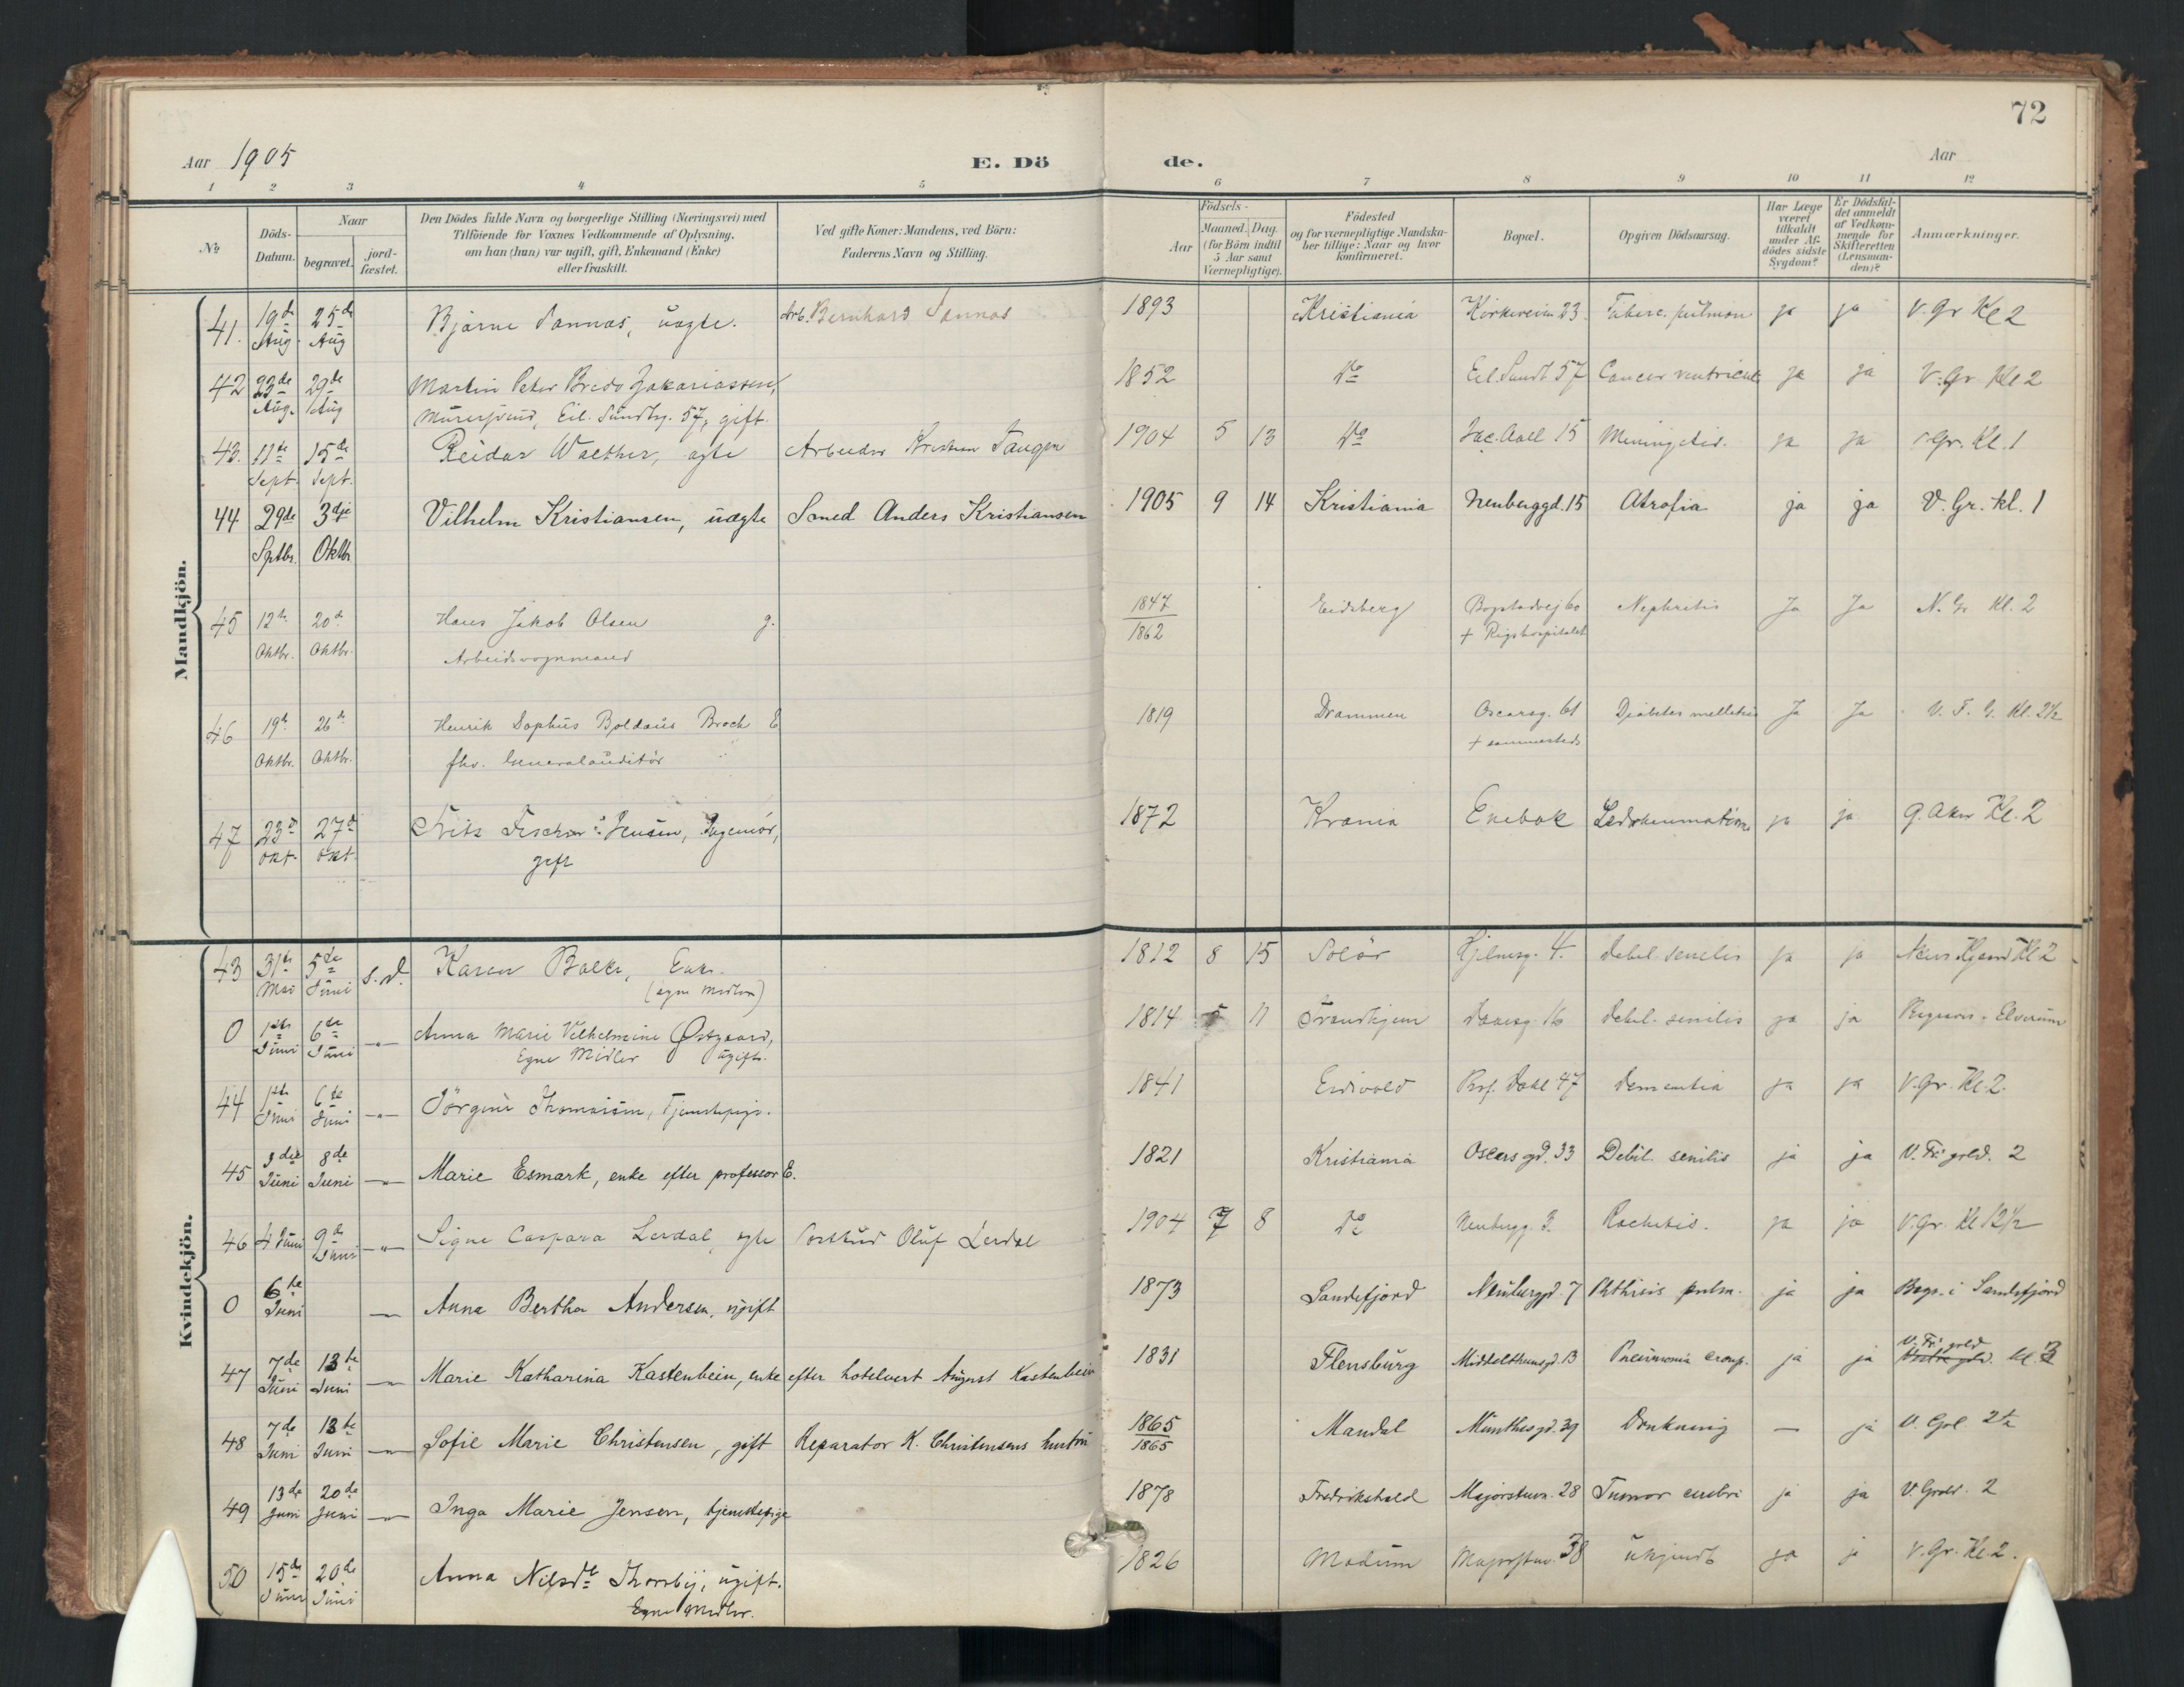 72
Aar 1905 E. Dö de. Aar
1 2 3 4 5 6 7 8 9 10 11 12
No
Döds-Datum.
Naar
begravet.
jord-fæstet.
Den Dödes fulde Navn og borgerlige Stilling (Næringsvei) med
Tilföiende for Voxnes Vedkommende af Oplysning,
om han (hun) var ugift, gift, Enkemand (Enke)
eller fraskilt.
Ved gifte Koner: Mandens, ved Börn:
Faderens Navn og Stilling.
Födsels-
Aar
Maaned. Dag.
(for Börn indtil
5 Aar samt
Værnepligtige).
Födested
og for værnepligtige Mandska-
ber tillige: Naar og hvor
konfirmeret.
Bopæl.
Opgiven Dödsaarsag.
Har Læge
været
tilkaldt
under Af-
dödes sidste
Sygdom?
Er Dödsfal-
det anmeldt
af Vedkom-
mende for
Skifteretten
(Lensman-
den)?
Anmærkninger.
Mandkjön.
41. 19de Aug. 25de Aug Bjarne Sannas, uægte. Arb. Bernhard Sannas 1893 Kristiania Kirkeveien 23 Tuberc. pulmon ja ja V. Gr Kl 2
42 23de Aug. 29de Aug Martin Peter Bredo Zakariassen, 1852 do Eil. Sundt 57 Cancer ventricul. ja ja V. Gr. Kl 2
Murersvend, Eil. Sundtsg. 57, gift.
43. 11te Sept. 15de Sept. Reidar Walther, ægte Arbeider Kristian Taugen 1904 5 13 do Jac. Aall 15 Meningitis. ja ja V Gr. Kl. 1
44 29de Septbr. 3dje Oktbr Vilhelm Kristiansen, uægte Smed Anders Kristiansen 1905 9 14 Kristiania Neuberggd. 15 Atrofia ja ja V. Gr. kl. 1
45 12te Oktbr. 20de Oktbr. Hans Jakob Olsen g. 1847 1862 Eidsberg Bogstadvej 60 Nephritis Ja Ja N. Gr Kl. 2
Arbeidsvognmand + Rigshospitalet
46 19de Oktbr. 26de Oktbr. Henrik Sophus Boldaus Broch E 1819 Drammen Oscarsg. 61 Diabetes mellitus Ja Ja V. F. G. Kl. 2½
fhv. Generalauditör + sammesteds
47 23de Okt. 27de Okt. Fritz Fischer Jensen, Ingeniör, 1872 Krania Enebak Ledrheumatisme ja ja Kl. 2
gift
Kvindekjön.
43 31te Mai 5te Juni s.d. Karen Enke. 1812 8 15 Solör 4. Debil. senilis ja ja Kl 2
(egne Midler)
0 1ste Juni 6te Juni -"- Anna Marie Vilhelmine Østgaard, 1814 5 11 Trondhjem 16 Debil. senilis ja ja Elverum
Egne Midler ugift.
44 1ste Juni 6te Juni -"- Jörgine Thomasson, Tjenestepige. 1841 Eidsvold Prof. Dahl 47 Dementia ja ja V. Gr. Kl 2.
45 3die Juni 8de Juni -"- Marie Esmark, enke efter professor E. 1821 Kristiania Oscarsgd. 33 Debil. senilis ja ja V. Fr. grld. 2
46 4 Juni 9de Juni -"- Signe Caspara Lerdal, ægte Postbud Oluf Lerdal 1904 7 8 do Neubergg. 3. Rachitis. ja ja V. Gr. Kl 2½
0 6te Juni -"- Anna Bertha Andersen, ugift 1873 Sandefjord Neuberggd. 7 Phthisis pulm. ja ja Begr. i Sandefjord
47 7de Juni 13te Juni -"- Marie Katharina Kastenbein, enke efter hotelvert August Kastenbein 1831 Flensburg Middelthunsgd. 13 Pneumonia croup. ja ja V. Fr. grld kl. 3
48 7de Juni 13te Juni -"- Sofie Marie Christensen, gift Reparator K. Christensens hustru 1865 1865 Mandal Munthesgd. 39 Drukning — ja V. Grl. 2½
49 13de Juni 20de Juni -"- Inga Marie Jensen, tjenestepige 1878 Fredrikshald Majorstuv. 28 Tumor cerebri ja ja V. Grld. 2
50 15de Juni 20de Juni Anna Nilsdt. Thorsby, ugift. 1826 Modum Majorstuv. 38 ukjendt ja ja V. Gr. Kl. 2.
Egne Midler.